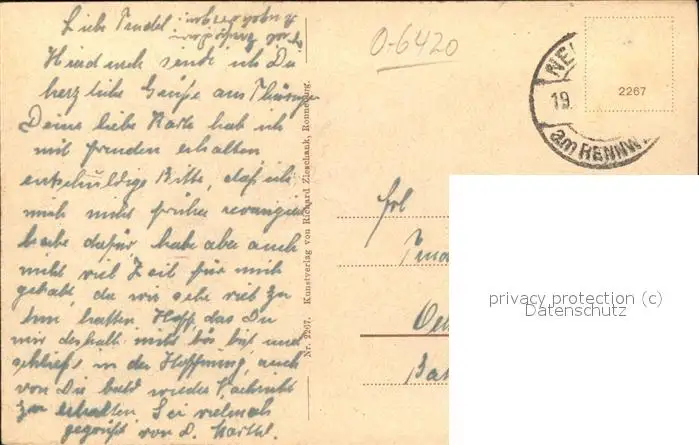 Liebe Trudel
Hierdurch sende ich Dir
herzliche Grüße aus Thüringen
Deine liebe Karte hab ich
mit freuden erhalten
entschuldige Bitte, daß ich
mich nicht früher revangiert
habe dafür, habe aber auch
nicht viel Zeit für mich
gehabt, da wir sehr viel zu
tun hatten Hoff. das Du
mir deshalb nicht bös bist und
schließe in der Hoffnung, auch
von Dir bald wieder Nachricht
zu erhalten Sei vielmals
gegrüßt von d.
Nr. 2267. Kunstverlag von Richard Zieschank, Ronneburg.
0-6420
2267
NE
19.
am RENNW
Frl
privacy protection (c)
Datenschutz